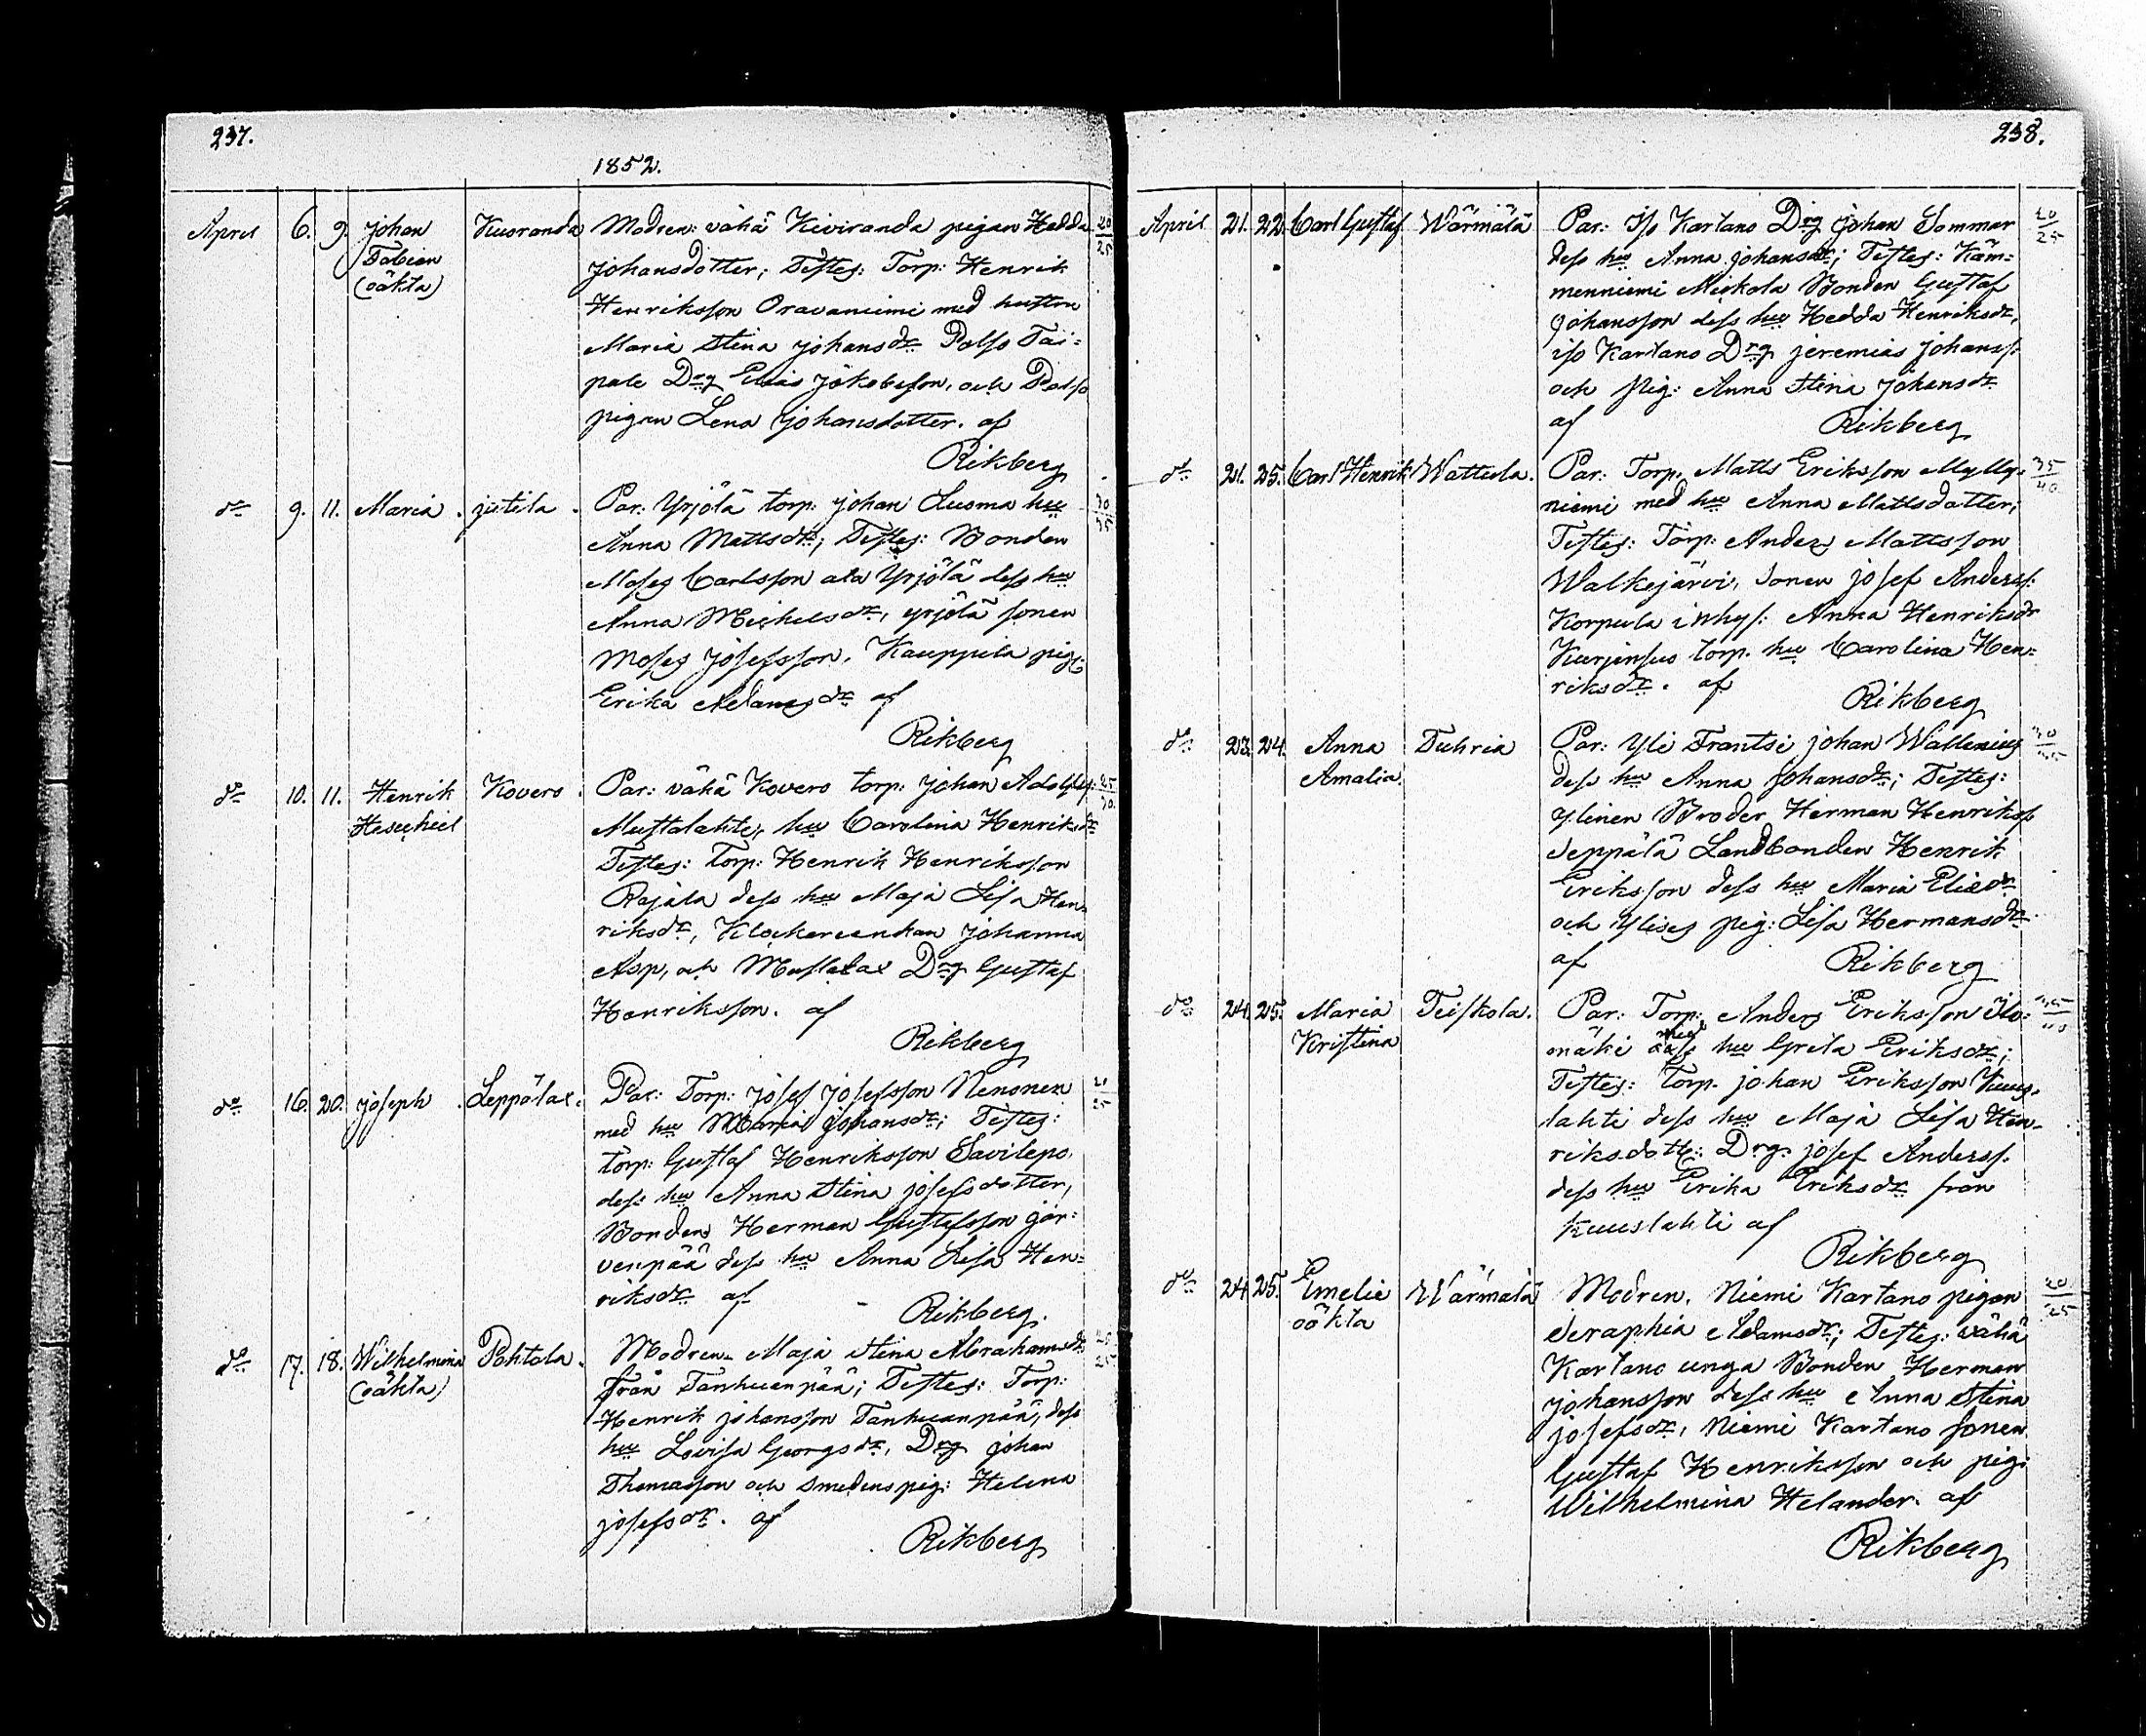 237.
1852.
April 6. 9. Johan Kuoranda Modren: vähä Kiviranda pigan Hedda 20/25
Fabian Johansdotter; Testes: Torp: Henrik
(oäkta) Henriksson Oravaniemi med hustru
Maria Stina Johansdr Palso Tai-
pale Drg Elias Jakobsson, och Palso
pigan Lena Johansdotter. af
Rikberg
do 9. 11. Maria. Jutila. Par: Yrjölä torp: Johan Lusma hu 30/35
Anna Mattsdr; Testes: Bonden
Moses Carlsson ala Yrjölä dess hu
Anna Michelsdr, yrjölä sonen
Moses Josefsson, Kauppila pig:
Erika Adamsdr af
Rikberg
do 10. 11. Henrik Kovero. Par: vähä Kovero torp: Johan Adolfss: 25/30
Hesechiel Mustalahti, hu Carolina Henriksdr
Testes: Torp: Henrik Henriksson
Rajala dess hu Maja Lisa Hen-
riksdr, Klockareenkan Johanna
Asp, och Mustalax Drg Gustaf
Henriksson. af
Rikberg
do 16. 20. Joseph. Leppälax. Par: Torp: Josef Josefsson Nenonen 20/25
med hu Maria Johansdr; Testes:
Torp: Gustaf Henriksson Savilepo
dess hu Anna Stina Josefsdotter,
Bonden Herman Gustafsson Jär-
venpää dess hu Anna Lisa Hen-
riksdr af
Rikberg.
do 17. 18. Wilhelmina Pohtola. Modren. Maja Stina Abrahamsdr 20/25
(oäkta) från Tanhuanpää; Testes: Torp:
Henrik Johansson Tanhuanpää, dess
hu Lovisa Georgsdr, Drg Johan
Thomasson och Smedens pig: Helena
Josefsdr. af
Rikberg
238.
April 21. 22. Carl Gustaf Wärmälä Par: Iso Kartano Drg Johan Sommar 20/25
dess hu Anna Johansdr; Testes: Käm-
menniemi Miekola Bonden Gustaf
Johansson dess hu Hedda Henriksdr,
iso Kartano Drg Jeremias Johanss:
och pig: Anna Stina Johansdr
af Rikberg
do 21. 25. Carl Henrik Wattula. Par: Torp. Matts Eriksson Mylly- 35/40
niemi med hu Anna Mattsdotter;
Testes: Torp: Anders Mattsson
Walkejärvi, Sonen Josef Anderss:
Korpula inhys: Anna Henriksdr
Kurjensuo torp. hu Carolina Hen-
riksdr. af
Rikberg
do 23. 24. Anna Tuhria Par: Yli Frantsi Johan Wallenius
Amalia. dess hu Anna Johansdr; Testes:
Ylinen Broder Herman Henrikss
Seppälä Landbonden Henrik
Eriksson dess hu Maria Eliedr
och Ylisis pig: Lisa Hermansdr
af Rikberg
do 24. 25. Maria Teiskola. Par: Torp: Anders Eriksson Ilo-
Kristina mäki med hu Greta Eriksdr;
Testes: Torp. Johan Eriksson Kuus-
lahti dess hu Maja Lisa Hen-
riksdotter: Drg. Josef Anderss.
dess hu Erika Eriksdr från
Kuuslahti af
Rikberg
do 24. 25. Emelie Wärmälä Modren. Niemi Kartano pigan 20/25
oäkta Seraphia Adamsdr; Testes: vähä
Kartano unga Bonden Herman
Johansson dess hu Anna Stina
Josefsdr, Niemi Kartano sonen
Gustaf Henriksson och pig:
Wilhelmina Helander. af
Rikberg